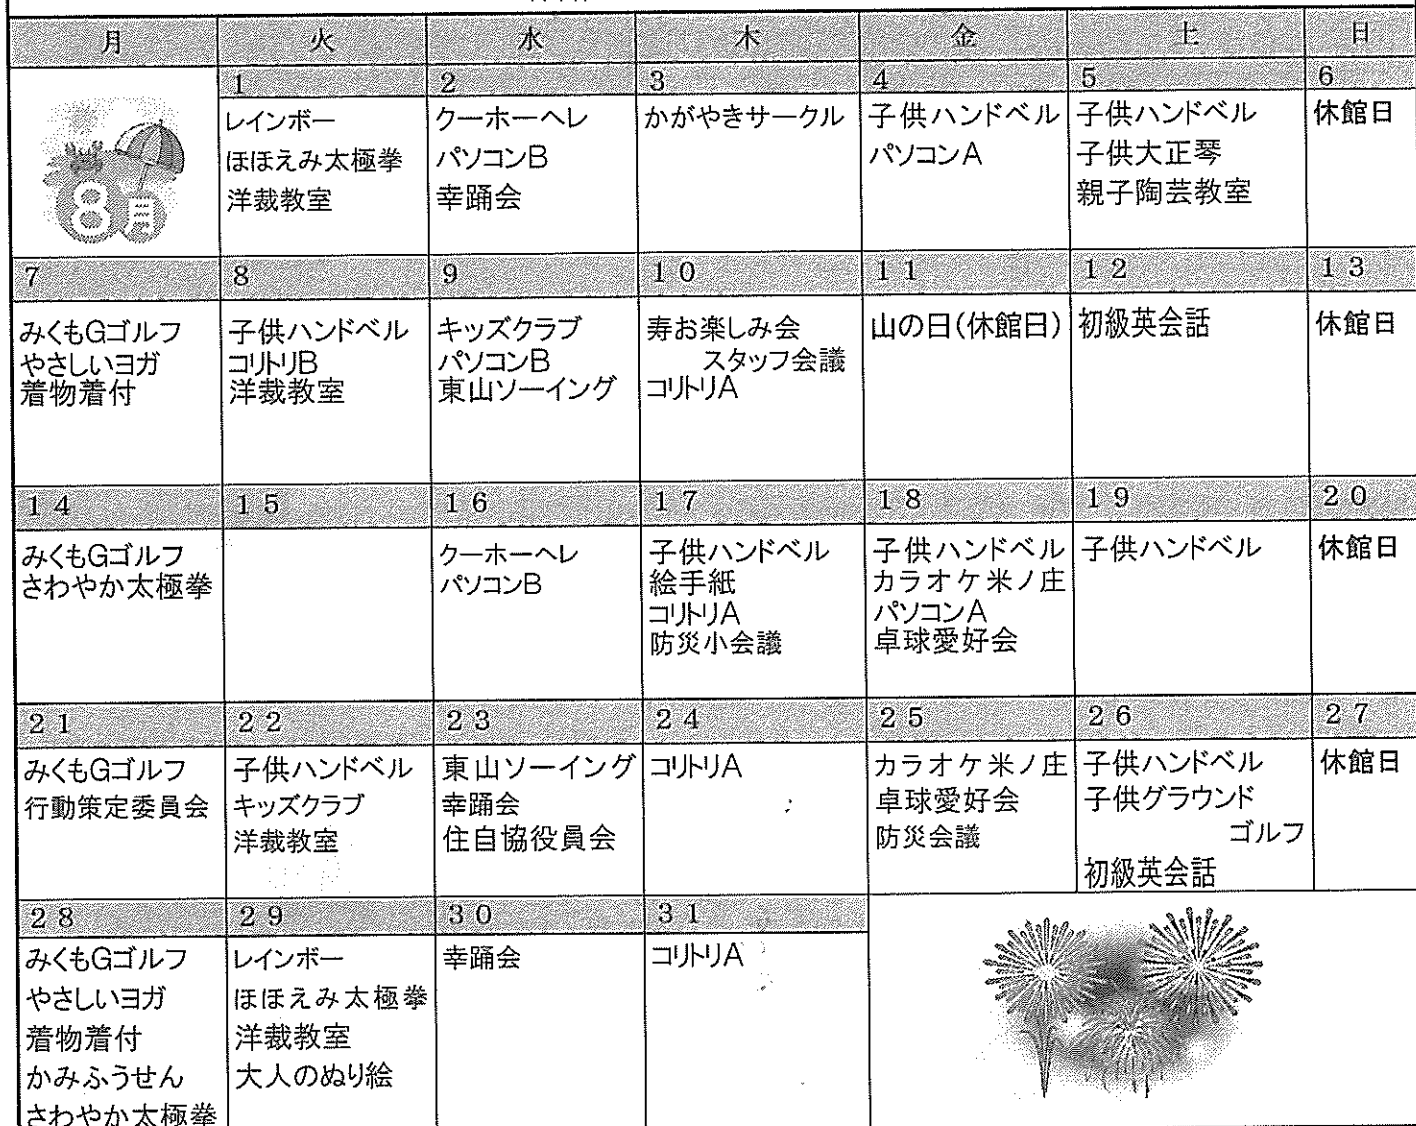 月 火 水 木 金 土 日
8月
1
レインボー
ほほえみ太極拳
洋裁教室
2
クーホーヘレ
パソコンB
幸踊会
3
かがやきサークル
4
子供ハンドベル
パソコンA
5
子供ハンドベル
子供大正琴
親子陶芸教室
6
休館日
7
みくもGゴルフ
やさしいヨガ
着物着付
8
子供ハンドベル
コリトリB
洋裁教室
9
キッズクラブ
パソコンB
東山ソーイング
10
寿お楽しみ会
スタッフ会議
コリトリA
11
山の日(休館日)
12
初級英会話
13
休館日
14
みくもGゴルフ
さわやか太極拳
15
16
クーホーヘレ
パソコンB
17
子供ハンドベル
絵手紙
コリトリA
防災小会議
18
子供ハンドベル
カラオケ米ノ庄
パソコンA
卓球愛好会
19
子供ハンドベル
20
休館日
21
みくもGゴルフ
行動策定委員会
22
子供ハンドベル
キッズクラブ
洋裁教室
23
東山ソーイング
幸踊会
住自協役員会
24
コリトリA
25
カラオケ米ノ庄
卓球愛好会
防災会議
26
子供ハンドベル
子供グラウンド
ゴルフ
初級英会話
27
休館日
28
みくもGゴルフ
やさしいヨガ
着物着付
かみふうせん
さわやか太極拳
29
レインボー
ほほえみ太極拳
洋裁教室
大人のぬり絵
30
幸踊会
31
コリトリA